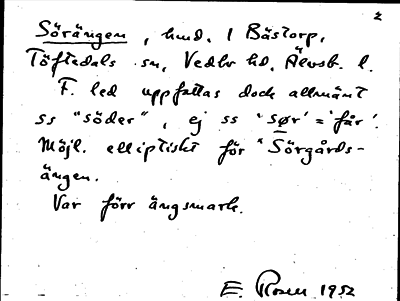 2
Sörängen, hmd. 1 Bästorp,
Töftedals sn, Vedbo hd, Älvsb. l.
F. led uppfattas dock allmänt
ss "söder", ej ss 'sør' = 'får'.
Möjl. elliptiskt för *Sörgårds-
ängen.
Var förr ängsmark.
E. Rosen 1952